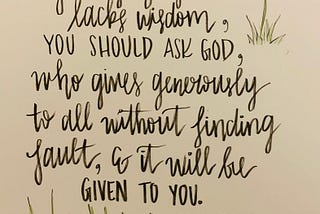 lacks wisdom,
YOU SHOULD ASK GOD,
who gives generously
to all without finding
fault, & it will be
GIVEN TO YOU.